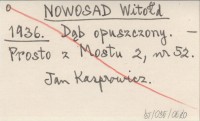 NOWOSAD Witołd
1936. Dąb opuszczony. —
Prosto z Mostu 2, nr 52.
Jan Kasprowicz.